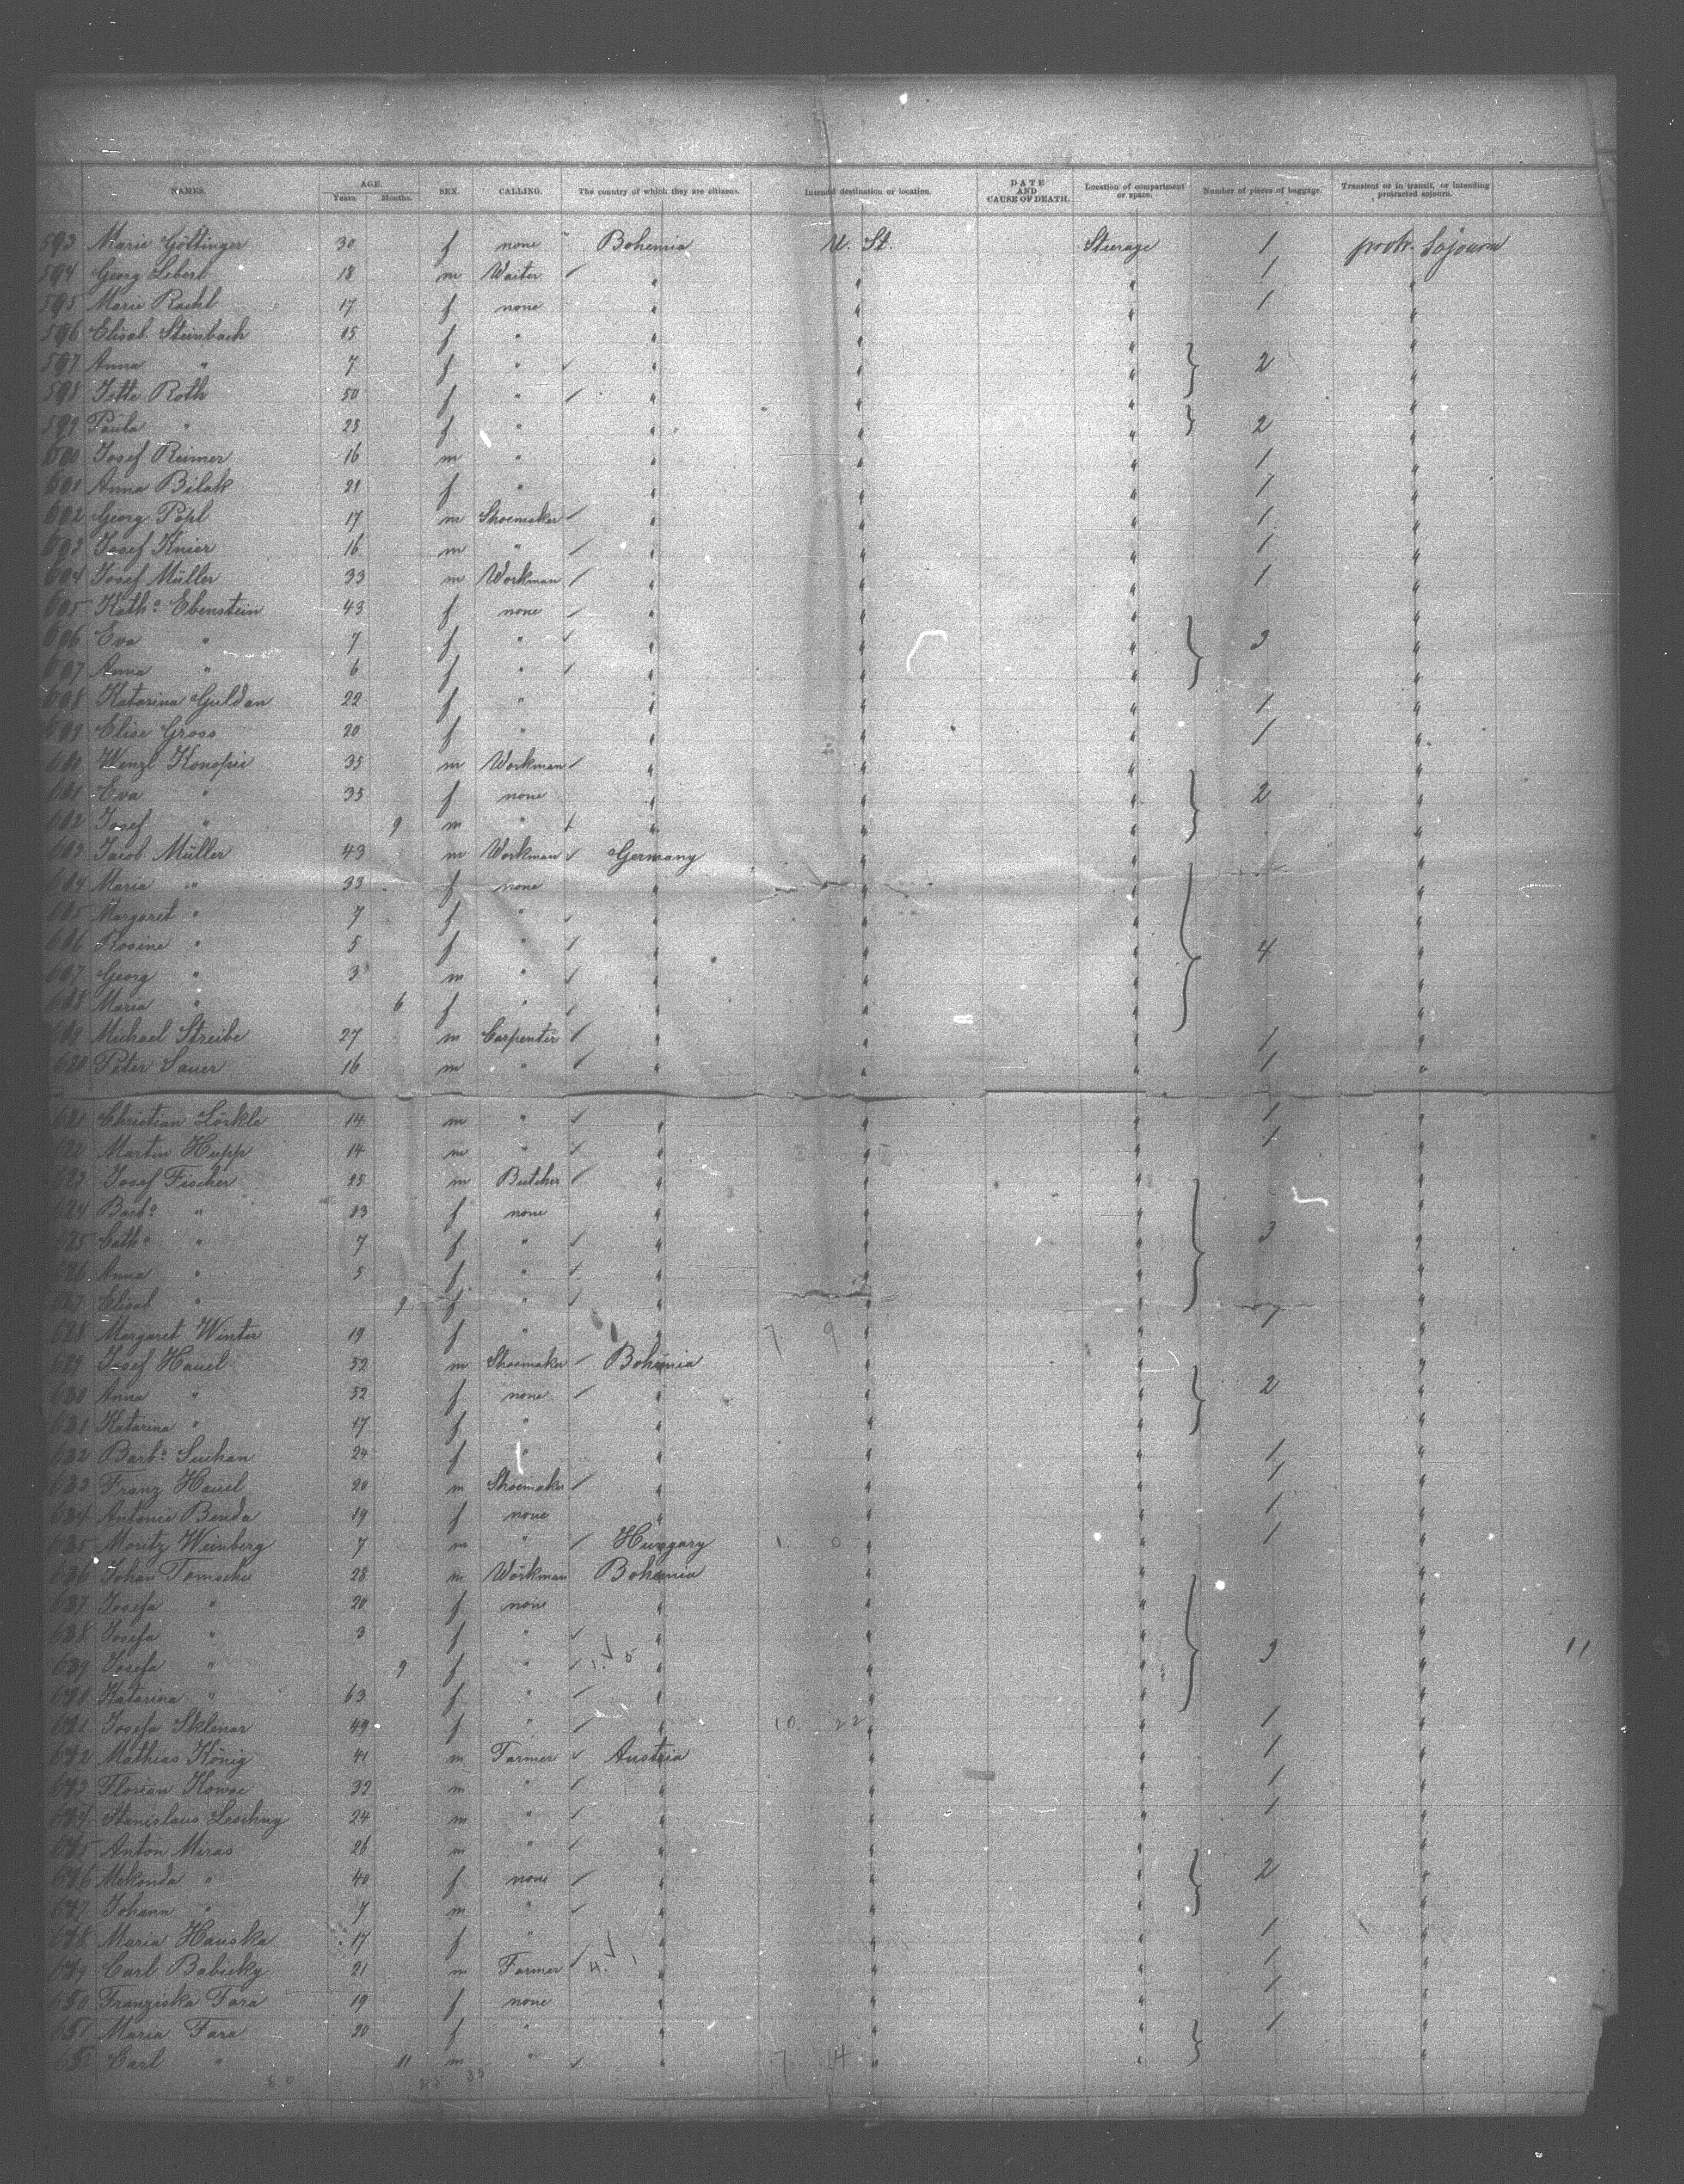 NAMES. AGE. Years. Months. SEX. CALLING. The country of which they are citizens. Intended destination or location. DATE AND CAUSE OF DEATH. Location of compartment or space. Number of pieces of baggage. Transient or in transit, or intending protracted sojourn.
593 Marie Göttinger 30 f none " Bohemia U. St. Steerage 1 protr. Sojourn
594 Georg Lebert 18 m Waiter " " " 1 "
595 Marie Rachl 17 f none " " " 1 "
596 Elisab. Steinbach 15 f " " " " "
597 Anna " 7 f " " " " 2 "
598 Jette Roth 50 f " " " " "
599 Paula " 23 f " " " " 2 "
600 Josef Reimer 16 m " " " " 1 "
601 Anna Bilak 21 f " " " " 1 "
602 Georg Popl 17 m Shoemaker " " " 1 "
603 Josef Knier 16 m " " " " 1 "
604 Josef Müller 33 m Workman " " " 1 "
605 Kath.a Ebenstein 43 f none " " " "
606 Eva " 7 f " " " " 3 "
607 Anna " 6 f " " " " "
608 Katarina Guldan 22 f " " " " 1 "
609 Elise Gross 20 f " " " " 1 "
610 Wenzl Konopii 35 m Workman " " " "
611 Eva " 35 f none " " " 2 "
612 Josef " 9 m " " " " "
613 Jacob Müller 43 m Workman Germany " " "
614 Maria " 33 f none " " " "
615 Margaret " 7 f " " " " "
616 Rosine " 5 f " " " " 4 "
617 Georg " 3 m " " " " "
618 Maria " 6 f " " " " "
619 Michael Streibe 27 m Carpenter " " " 1 "
620 Peter Sauer 16 m " " " " 1 "
621 Christian Lörkle 14 m " " " " 1 "
622 Martin Hupp 14 m " " " " 1 "
623 Josef Fischer 25 m Butcher " " " "
624 Barb.a " 23 f none " " " "
625 Cath.a " 7 f " " " " 3 "
626 Anna " 5 f " " " " "
627 Elisab. " 9 f " " " " "
628 Margaret Winter 19 f " " 7 9 " " 1 "
629 Josef Hauel 52 m Shoemaker Bohemia " " "
630 Anna " 52 f none " " " 2 "
631 Katarina " 17 f " " " " "
632 Barb.a Suchan 24 f " " " " 1 "
633 Franz Hauel 20 m Shoemaker " " " 1 "
634 Antonie Benda 19 f none " " " 1 "
635 Moritz Weinberg 7 m " Hungary 1. 0 " " 1 "
636 Johan Tomschu 28 m Workman Bohemia " " "
637 Josefa " 20 f none " " " "
638 Josefa " 3 f " " " " "
639 Josefa " 9 f " " " " 3 " 11
640 Katarina " 63 f " " " " "
641 Josefa Sklenar 49 f " " 10. 22 " " 1 "
642 Mathias König 41 m Farmer Austria " " 1 "
643 Florian Kowac 32 m " " " " 1 "
644 Stanislaus Leschny 24 m " " " " 1 "
645 Anton Miras 26 m " " " " "
646 Mekonda " 40 f none " " " 2 "
647 Johann " 7 m " " " " "
648 Maria Hauska 17 f " " " " 1 "
649 Carl Babicky 21 m Farmer " " " 1 "
650 Franziska Fara 19 f none " " " 1 "
651 Maria Fara 20 f " " " " 1 "
652 Carl " 11 m " " 7 14 " " "